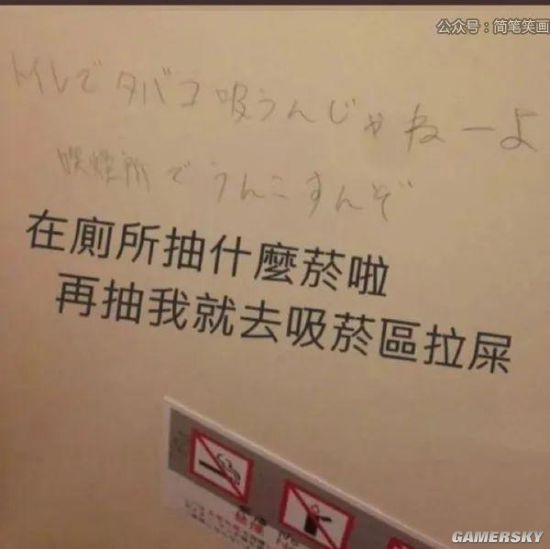 公众号：简笔笑画
トイレでタバコ吸うんじゃねーよ
喫煙所でうんこすんぞ
在廁所抽什麼菸啦
再抽我就去吸菸區拉屎
GAMERSKY